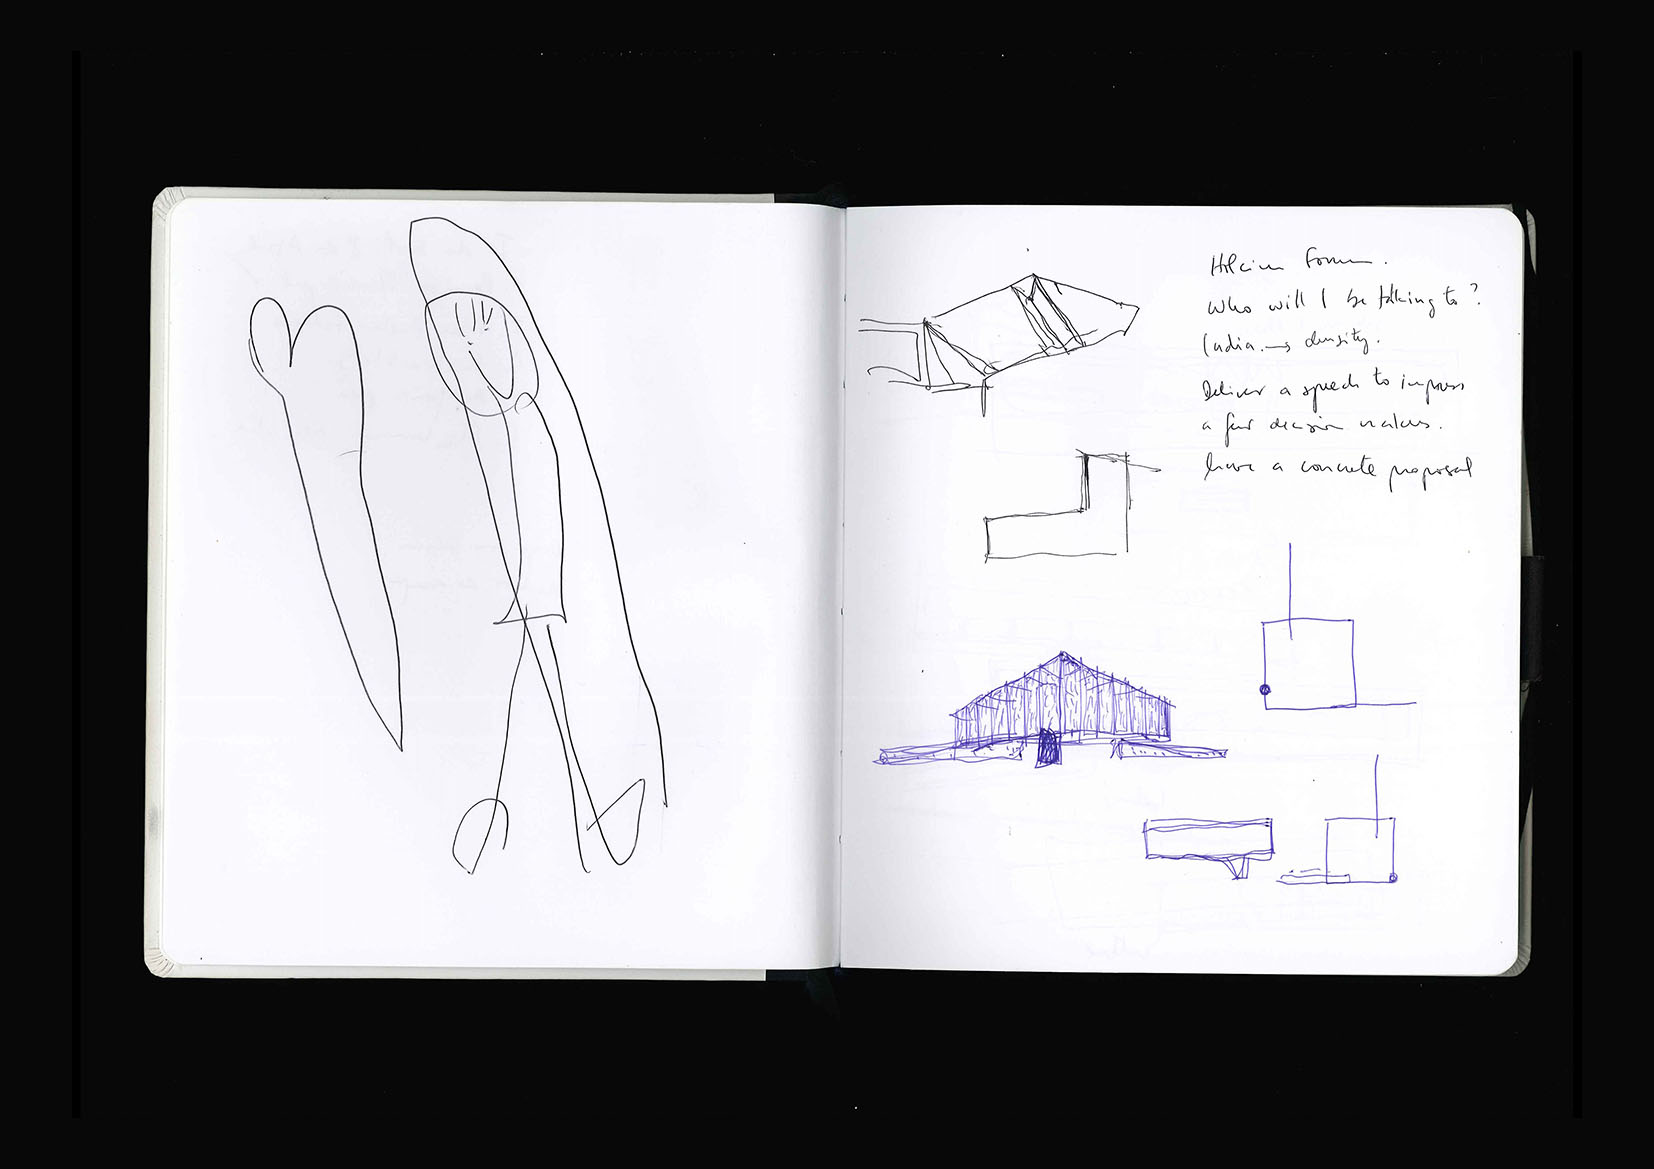 Holcim Forum.
Who will I be talking to?
India → density.
Deliver a speech to impress
a few decision makers.
have a concrete proposal